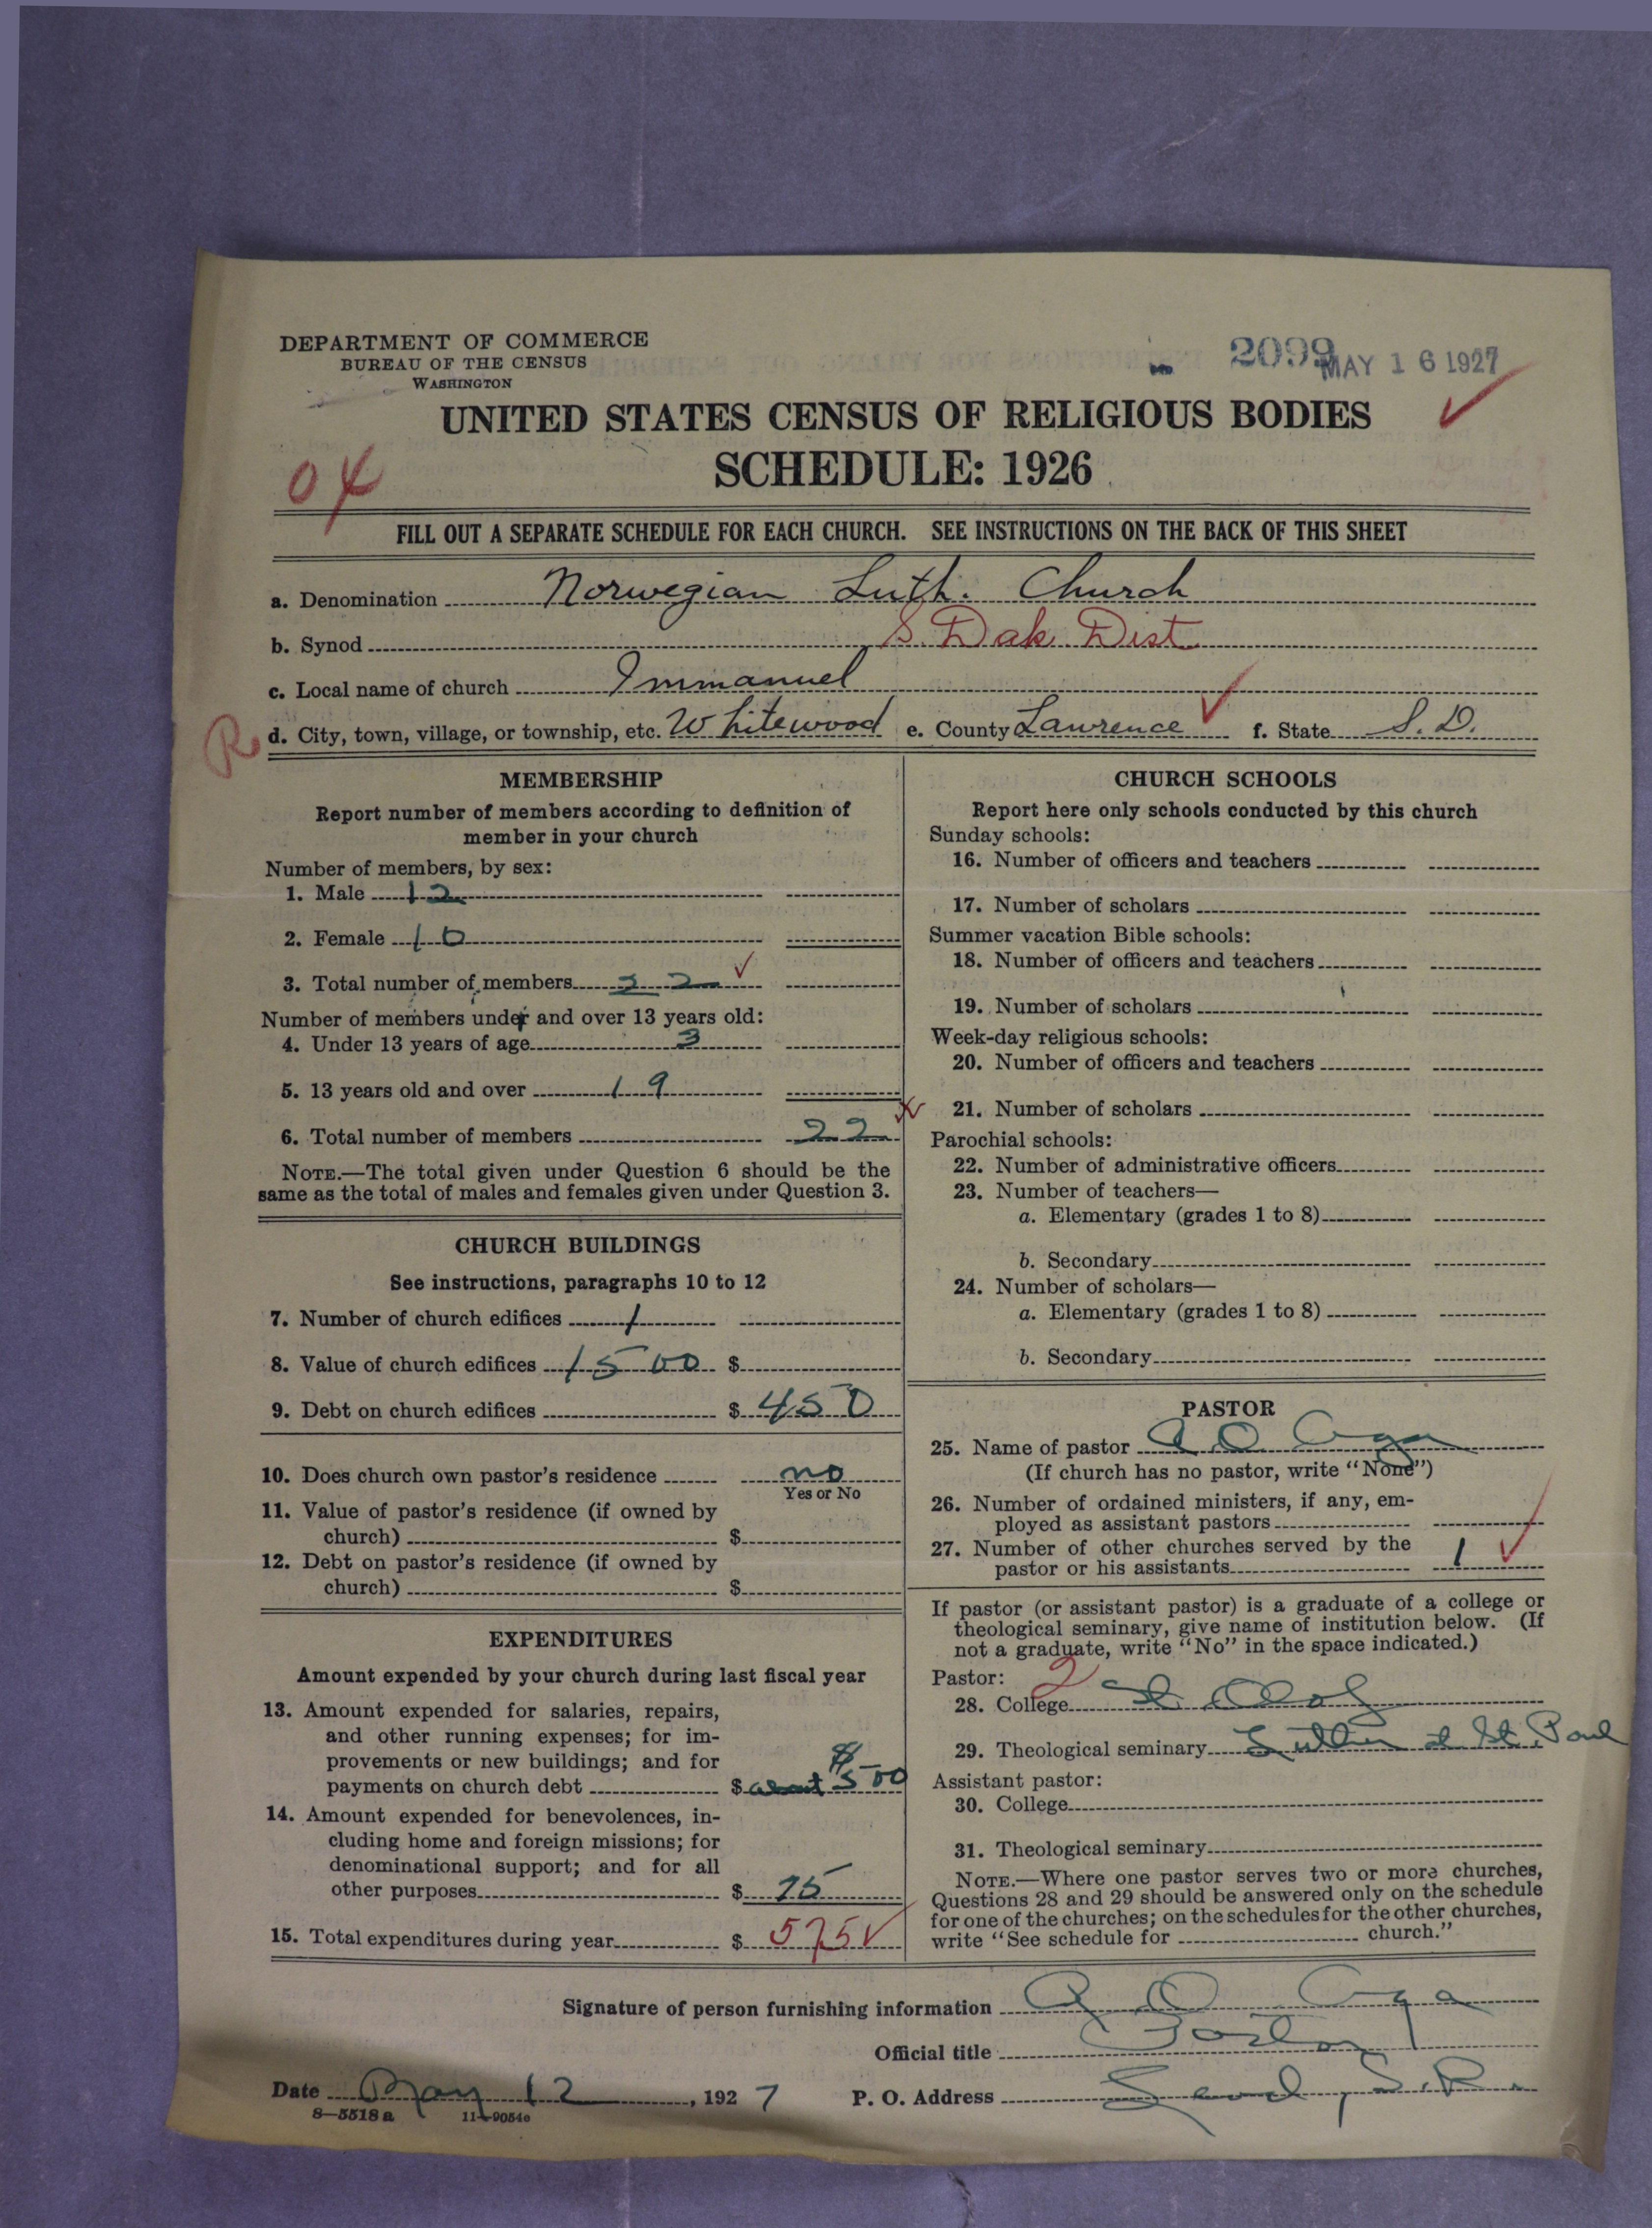 DEPARTMENT OF COMMERCE
BUREAU OF THE CENSUS
WASHINGTON
2099 MAY 16 1927
UNITED STATES CENSUS OF RELIGIOUS BODIES
SCHEDULE: 1926
04
FILL OUT A SEPARATE SCHEDULE FOR EACH CHURCH. SEE INSTRUCTIONS ON THE BACK OF THIS SHEET
a. Denomination Norwegian Luth. Church
b. Synod S. Dak. Dist.
c. Local name of church Immanuel
R d. City, town, village, or township, etc. Whitewood e. County Lawrence f. State S. D.
MEMBERSHIP
Report number of members according to definition of
member in your church
Number of members, by sex:
1. Male 12
2. Female 10
3. Total number of members 22
Number of members under and over 13 years old:
4. Under 13 years of age 3
5. 13 years old and over 19
6. Total number of members 22
NOTE.—The total given under Question 6 should be the
same as the total of males and females given under Question 3.
CHURCH BUILDINGS
See instructions, paragraphs 10 to 12
7. Number of church edifices 1
8. Value of church edifices 1500 $
9. Debt on church edifices $ 450
10. Does church own pastor's residence no
Yes or No
11. Value of pastor's residence (if owned by
church) $
12. Debt on pastor's residence (if owned by
church) $
EXPENDITURES
Amount expended by your church during last fiscal year
13. Amount expended for salaries, repairs,
and other running expenses; for im-
provements or new buildings; and for
payments on church debt $ about $500
14. Amount expended for benevolences, in-
cluding home and foreign missions; for
denominational support; and for all
other purposes $ 75
15. Total expenditures during year $ 575
CHURCH SCHOOLS
Report here only schools conducted by this church
Sunday schools:
16. Number of officers and teachers
17. Number of scholars
Summer vacation Bible schools:
18. Number of officers and teachers
19. Number of scholars
Week-day religious schools:
20. Number of officers and teachers
21. Number of scholars
Parochial schools:
22. Number of administrative officers
23. Number of teachers—
a. Elementary (grades 1 to 8)
b. Secondary
24. Number of scholars—
a. Elementary (grades 1 to 8)
b. Secondary
PASTOR
25. Name of pastor A O Aga
(If church has no pastor, write "None")
26. Number of ordained ministers, if any, em-
ployed as assistant pastors
27. Number of other churches served by the
pastor or his assistants 1
If pastor (or assistant pastor) is a graduate of a college or
theological seminary, give name of institution below. (If
not a graduate, write "No" in the space indicated.)
Pastor: 2
28. College St. Olaf
29. Theological seminary Luther at St. Paul
Assistant pastor:
30. College
31. Theological seminary
NOTE.—Where one pastor serves two or more churches,
Questions 28 and 29 should be answered only on the schedule
for one of the churches; on the schedules for the other churches,
write "See schedule for church."
Signature of person furnishing information A O Aga
Official title Pastor
Date May 12, 1927 P. O. Address Lead, S. D.
8—5518a 11—9054a